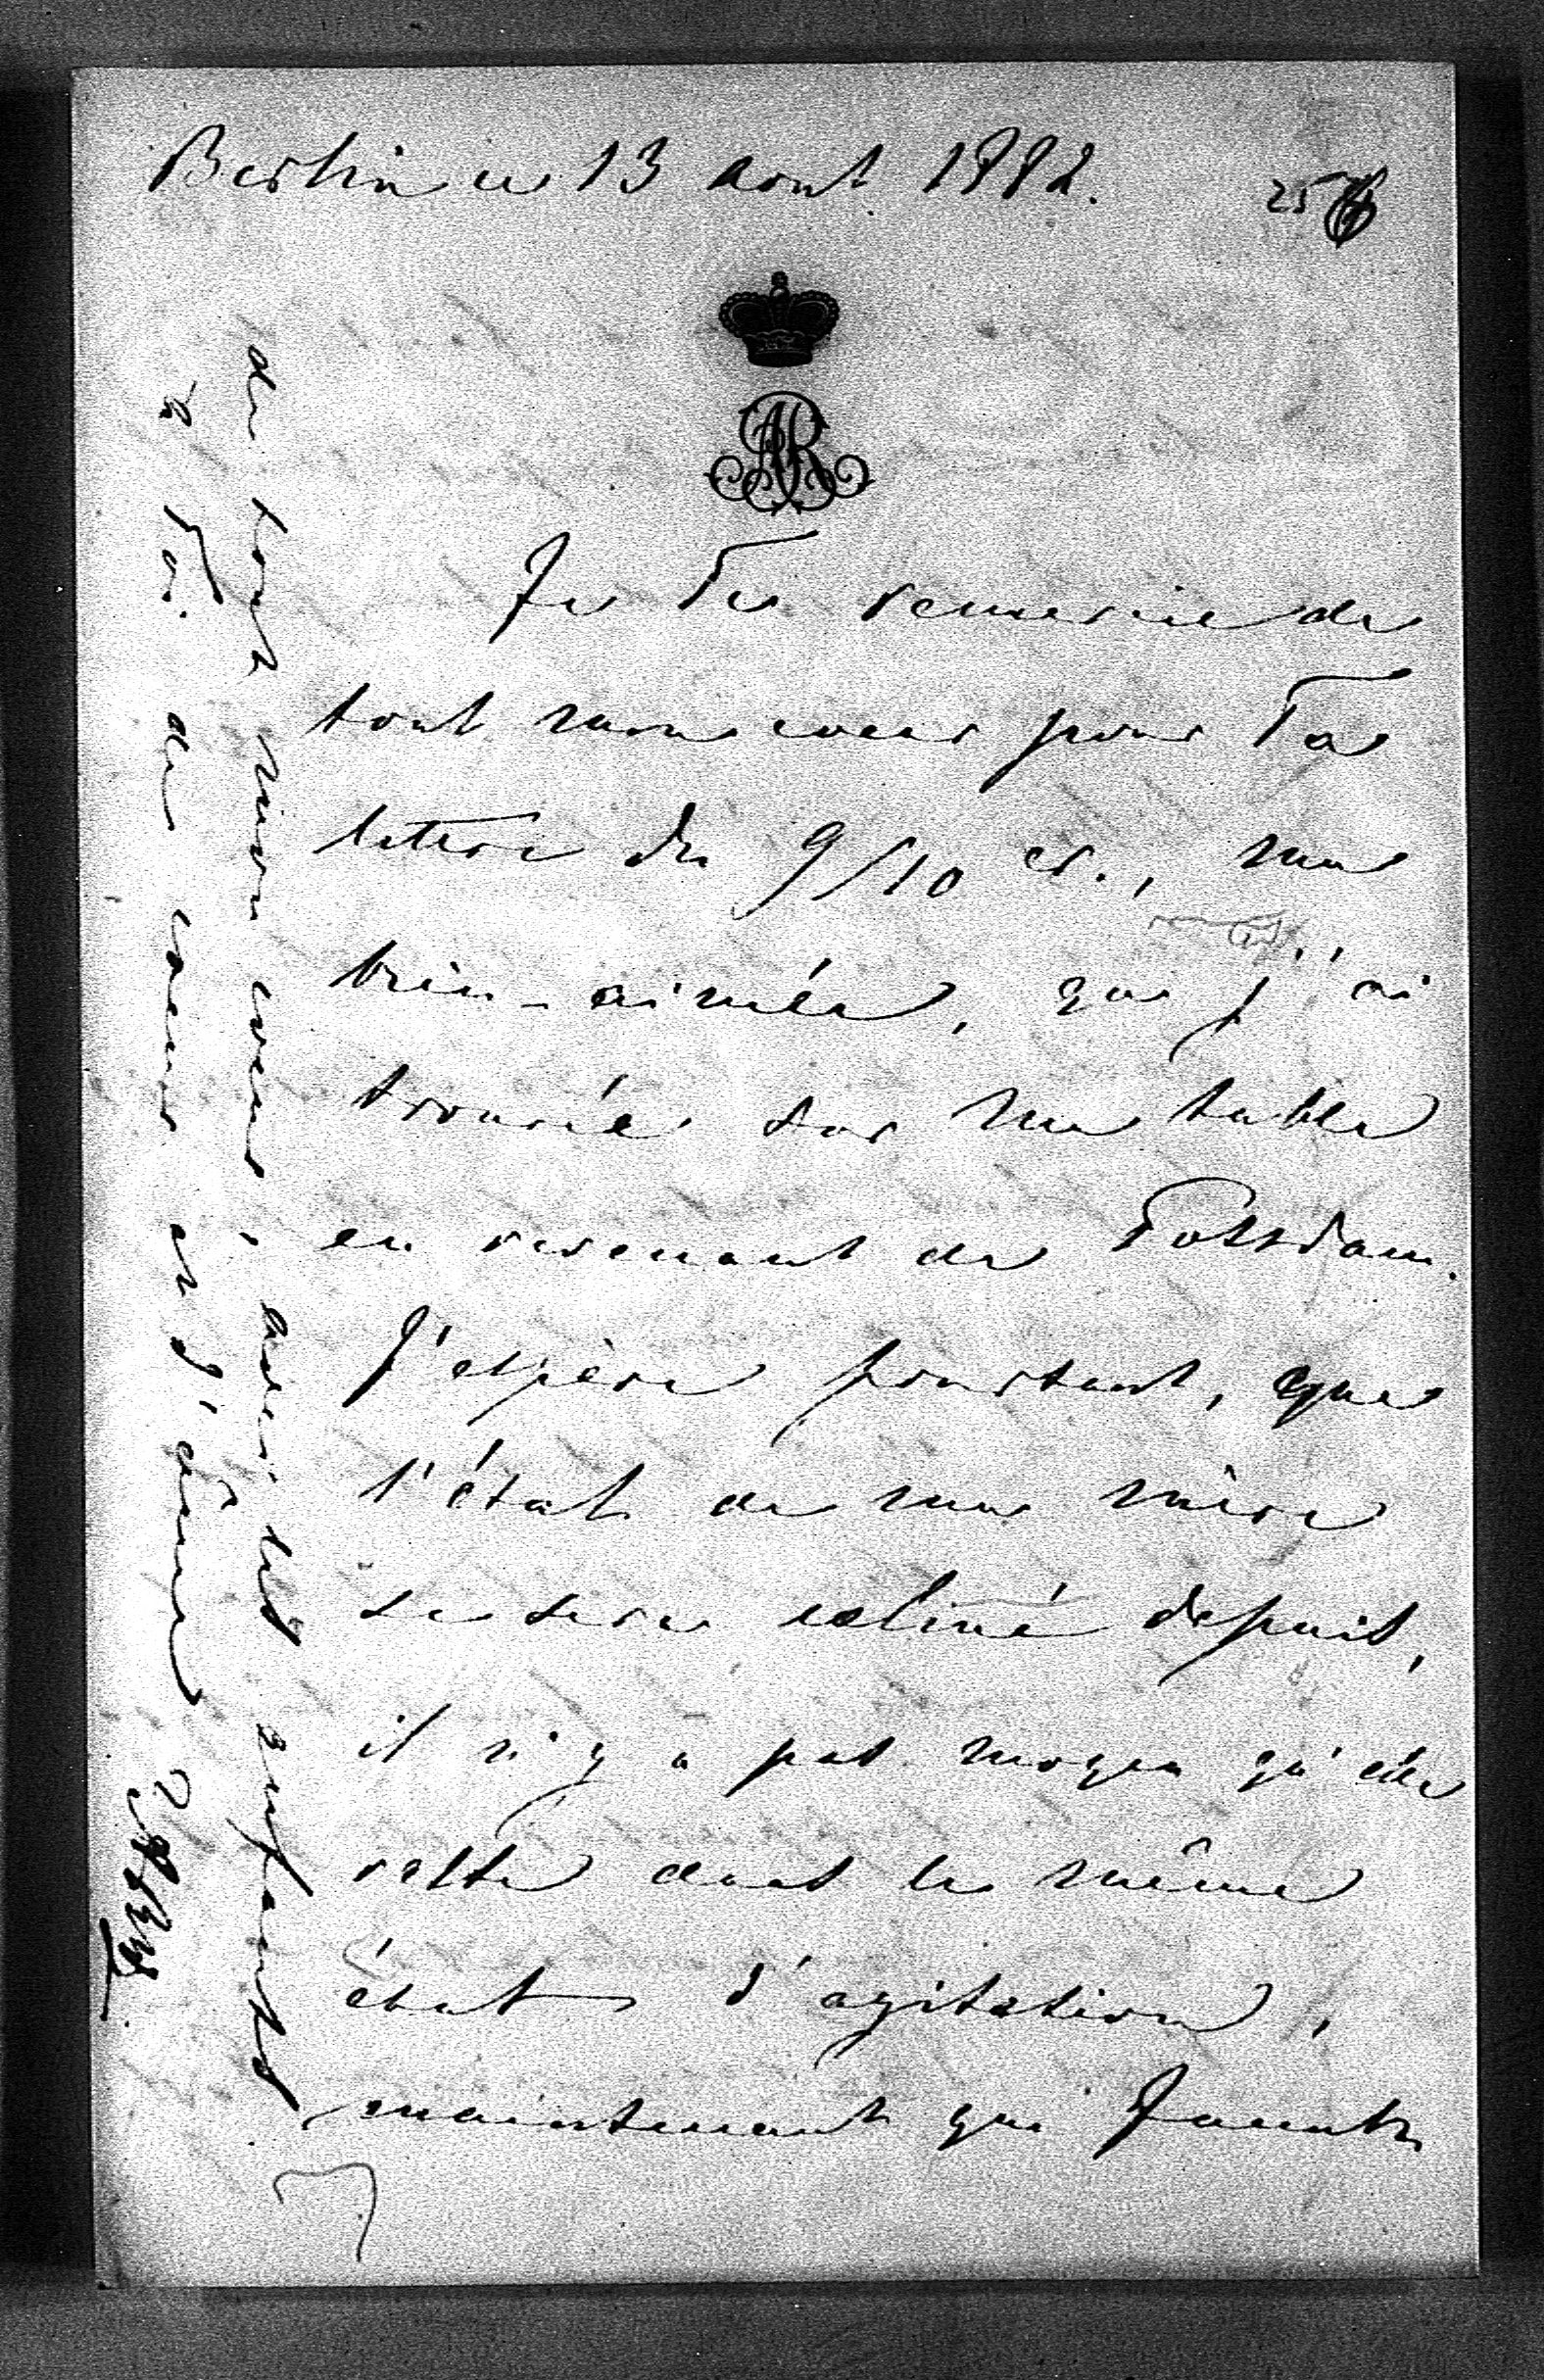 Berlin ce 13 aout 1882.
25
AR
Je Te remercie de
tout mon coeur pour Ta
lettre du 9/10 cr., ma
bien-aimée, que j'ai
trouvée sur ma table
en revenant de Potsdam.
J'espère pourtant, que
l'état de ma mère
se sera calmé depuis,
il n'y a pas moyen qu'elle
reste dans le même
état d'agitation,
maintenant que
de tout mon coeur, avec les enfants
à Toi de coeur et d'âme